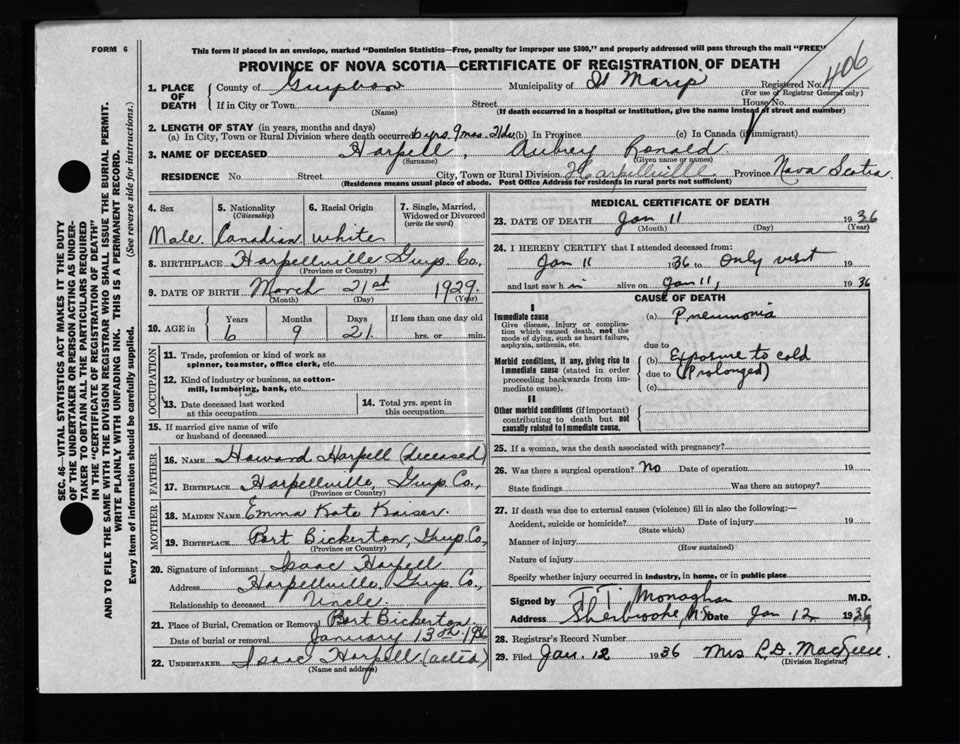 FORM 6
This form if placed in an envelope, marked "Dominion Statistics—Free, penalty for improper use $300," and properly addressed will pass through the mail "FREE"
PROVINCE OF NOVA SCOTIA—CERTIFICATE OF REGISTRATION OF DEATH
406
1. PLACE OF DEATH { County of Municipality of St Marys Registered No.
(For use of Registrar General only)
If in City or Town Street House No.
(Name) (If death occurred in a hospital or institution, give the name instead of street and number)
2. LENGTH OF STAY (in years, months and days)
(a) In City, Town or Rural Division where death occurred 6 yrs. 9 mos. 21 ds. (b) In Province (c) In Canada (if immigrant)
3. NAME OF DECEASED Harpell, Aubrey Ronald
(Surname) (Given name or names)
RESIDENCE No. Street City, Town or Rural Division Harpellville Province Nova Scotia
(Residence means usual place of abode. Post Office Address for residents in rural parts not sufficient)
4. Sex 5. Nationality (Citizenship) 6. Racial Origin 7. Single, Married, Widowed or Divorced (write the word)
Male Canadian white
8. BIRTHPLACE Harpellville Guys. Co.,
(Province or Country)
9. DATE OF BIRTH March 21st 1929
(Month) (Day) (Year)
10. AGE in { Years Months Days If less than one day old
6 9 21 hrs. or min.
OCCUPATION
11. Trade, profession or kind of work as spinner, teamster, office clerk, etc.
12. Kind of industry or business, as cotton-mill, lumbering, bank, etc.
13. Date deceased last worked at this occupation 14. Total yrs. spent in this occupation
15. If married give name of wife or husband of deceased
FATHER
16. NAME Howard Harpell (deceased)
17. BIRTHPLACE Harpellville, Guys. Co.,
(Province or Country)
MOTHER
18. MAIDEN NAME Emma Kate Kaiser
19. BIRTHPLACE Port Bickerton, Guys. Co.,
(Province or Country)
20. Signature of informant Isaac Harpell
Address Harpellville, Guys. Co.,
Relationship to deceased Uncle
21. Place of Burial, Cremation or Removal Port Bickerton
Date of burial or removal January 13th 1936
22. UNDERTAKER Isaac Harpell (acted)
(Name and address)
MEDICAL CERTIFICATE OF DEATH
23. DATE OF DEATH Jan 11 1936
(Month) (Day) (Year)
24. I HEREBY CERTIFY that I attended deceased from:
Jan 11 1936 to Only visit 19
and last saw h im alive on Jan 11, 1936
CAUSE OF DEATH
I
Immediate cause (a) Pneumonia
Give disease, injury or complication which caused death, not the mode of dying, such as heart failure, asphyxia, asthenia, etc.
due to
Morbid conditions, if any, giving rise to immediate cause (stated in order proceeding backwards from immediate cause).
(b) Exposure to cold
due to (Prolonged)
(c)
II
Other morbid conditions (if important) contributing to death but not causally related to immediate cause.
25. If a woman, was the death associated with pregnancy?
26. Was there a surgical operation? No Date of operation 19
State findings Was there an autopsy?
27. If death was due to external causes (violence) fill in also the following:—
Accident, suicide or homicide? Date of injury 19
(State which)
Manner of injury
(How sustained)
Nature of injury
Specify whether injury occurred in industry, in home, or in public place
Signed by T. T. Monaghan M.D.
Address Sherbrooke, N.S. Date Jan 12 1936
28. Registrar's Record Number
29. Filed Jan. 12 1936 Mrs
(Division Registrar)
SEC. 46—VITAL STATISTICS ACT MAKES IT THE DUTY
OF THE UNDERTAKER OR PERSON ACTING AS UNDER-
TAKER TO OBTAIN ALL THE PARTICULARS REQUIRED
IN THE "CERTIFICATE OF REGISTRATION OF DEATH"
AND TO FILE THE SAME WITH THE DIVISION REGISTRAR WHO SHALL ISSUE THE BURIAL PERMIT.
WRITE PLAINLY WITH UNFADING INK. THIS IS A PERMANENT RECORD.
Every item of information should be carefully supplied. (See reverse side for instructions.)